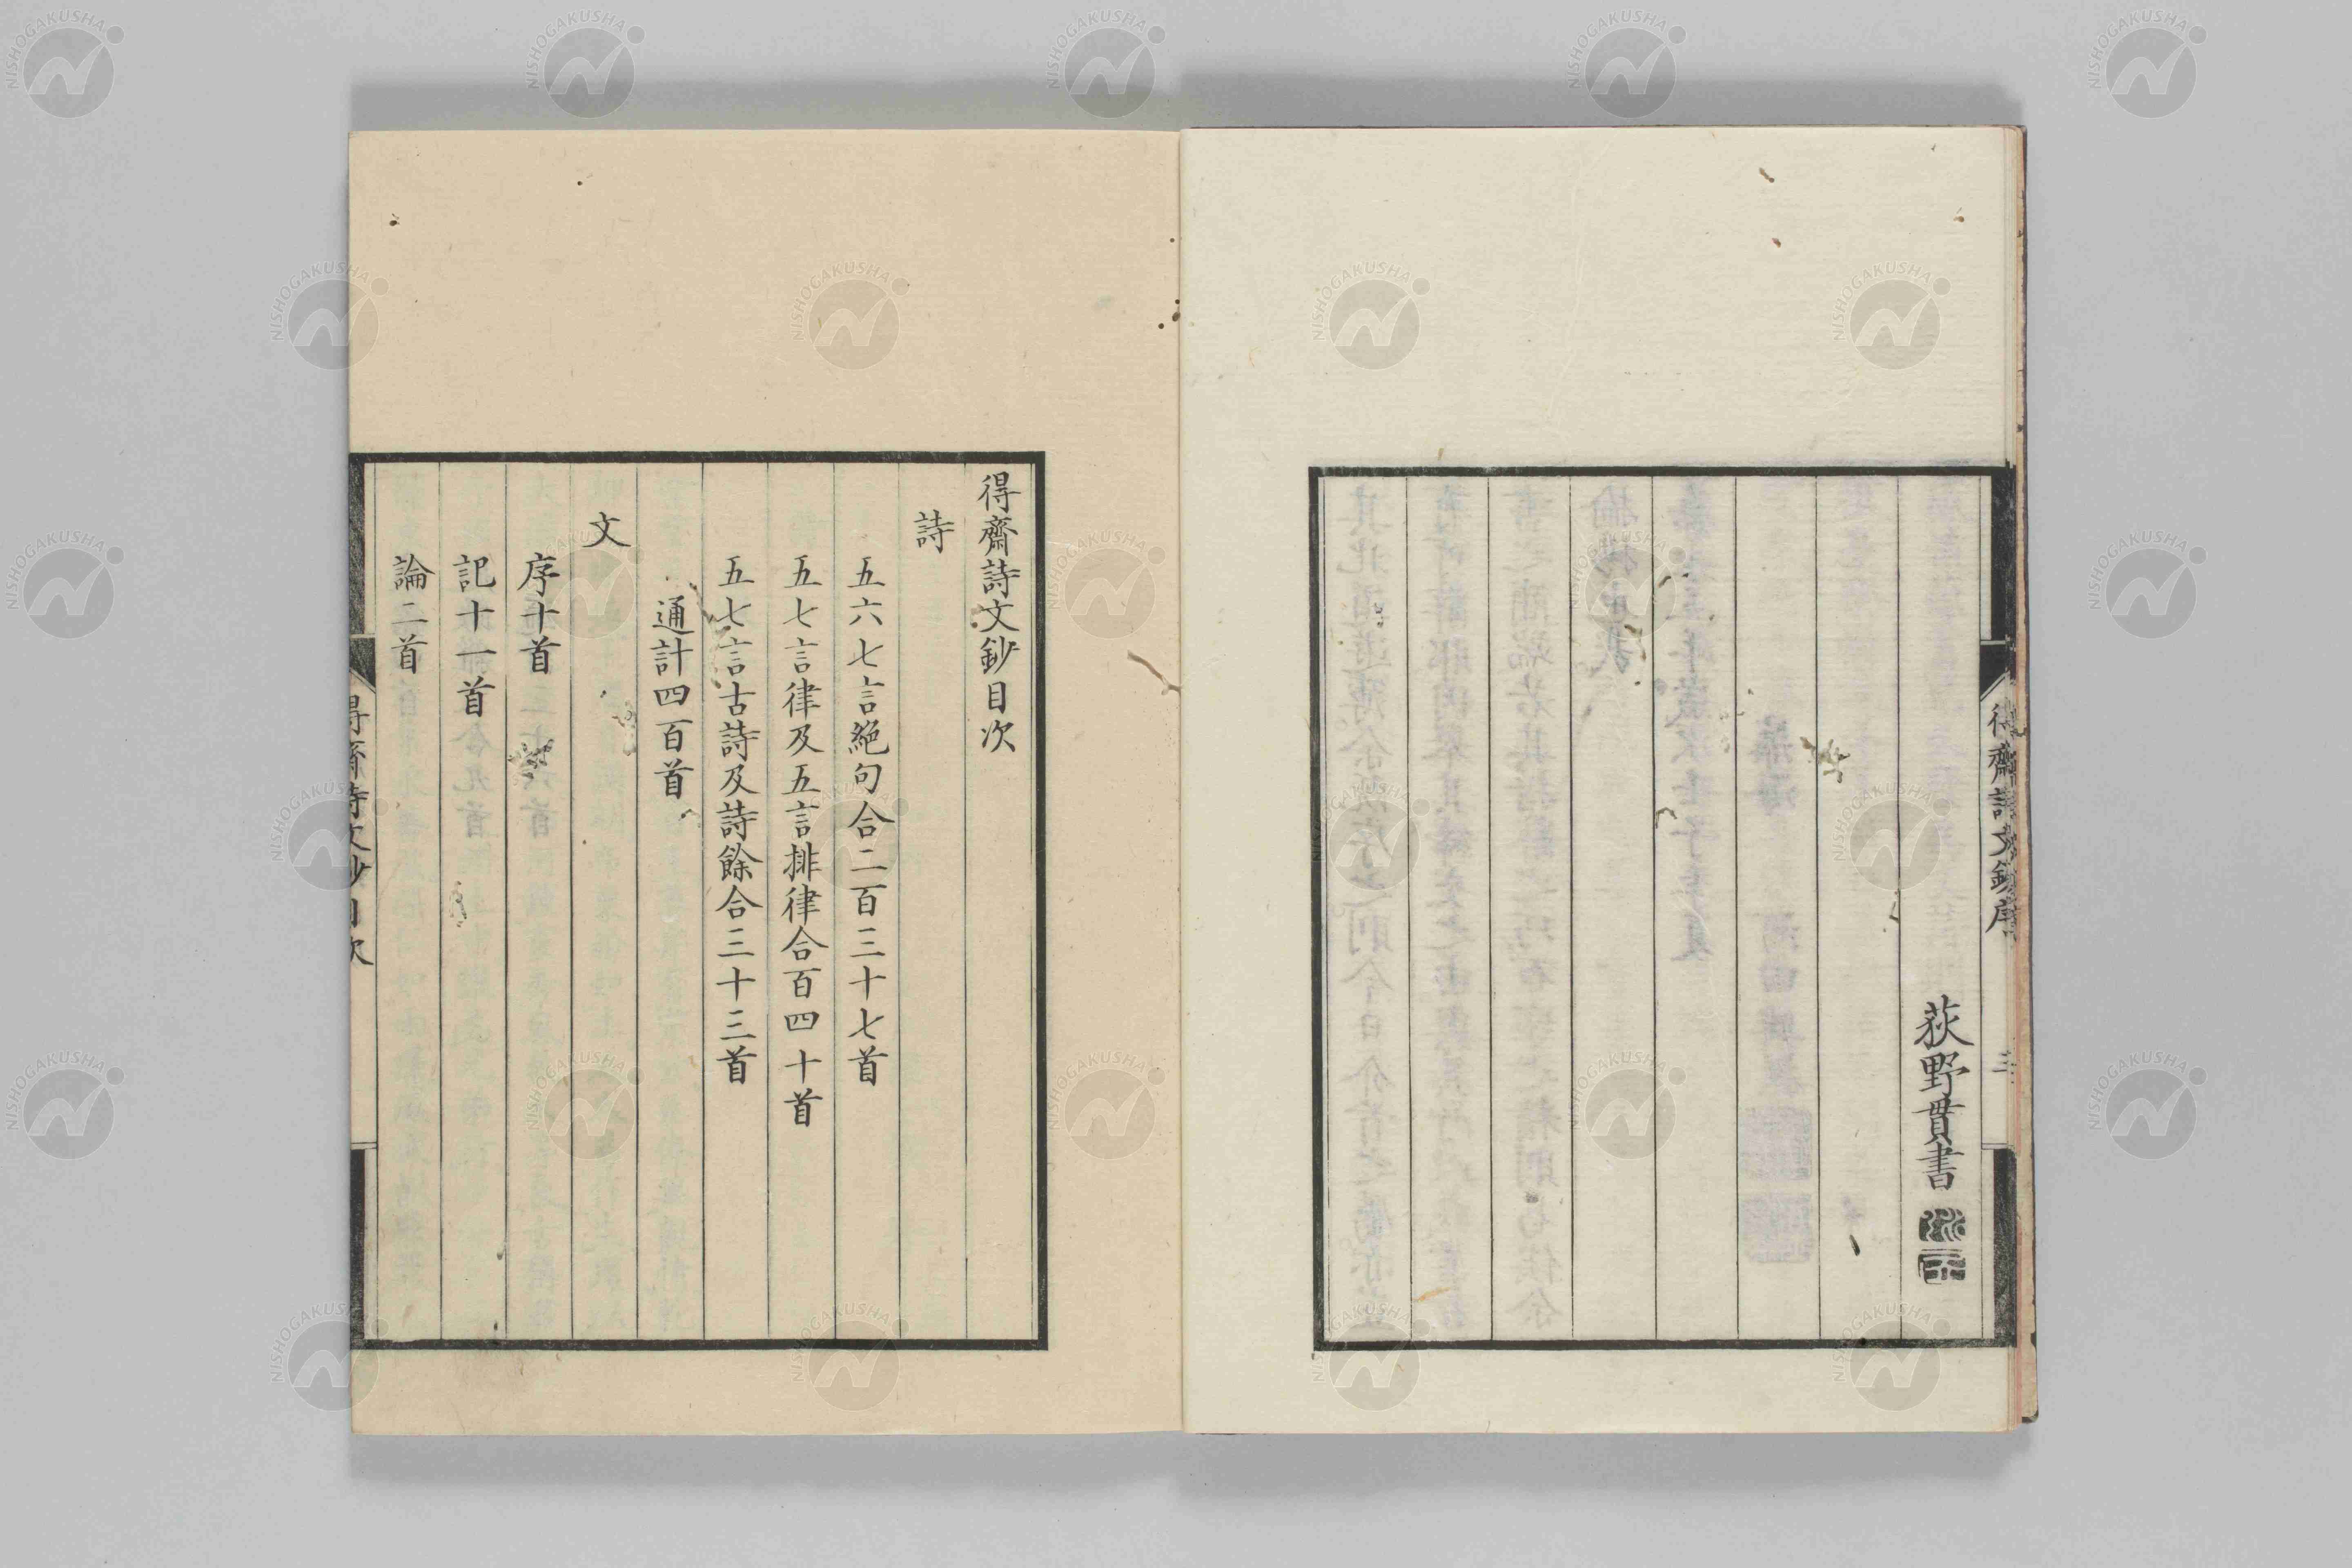 荻野貫書
得齋詩文鈔序
三
得齋詩文鈔目次
詩
五六七言絕句合二百三十七首
五七言律及五言排律合百四十首
五七言古詩及詩餘合三十三首
通計四百首
文
序十首
記十一首
論二首
得齋詩文鈔目次
NISHOGAKUSHA